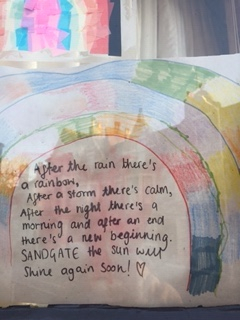 After the rain there's
a rainbow,
After a storm there's calm,
After the night there's a
morning and after an end
there's a new beginning.
SANDGATE the sun will
shine again soon! ♡